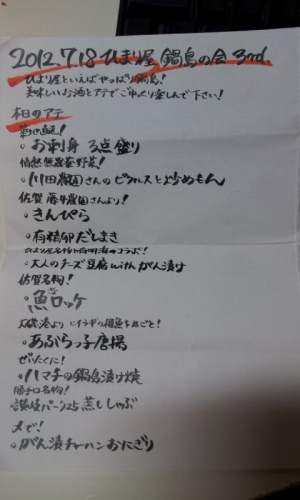 2012.7.18 ひまり屋 鍋島の会 3rd.
ひまり屋といえばやっぱり鍋島!
美味しいお酒とアテでごゆっくり楽しんで下さい!
本日のアテ
築地直送!
○お刺身 3点盛り
情熱無農薬野菜!
○川田農園さんのピクルスと炒めもん
佐賀 藤井農園さんより!
○きんぴら
○有精卵だしまき
ひまり屋名物と有明海のコラボ!
○大人のチーズ豆腐 with がん漬け
佐賀名物!
○魚ロッケ
○あぶらっ子唐揚
ぜいたくに!
○ハマチの鍋島漬け焼
勝手口名物!
讃岐 蒸ししゃぶ
〆で!
○がん漬チャーハンおにぎり